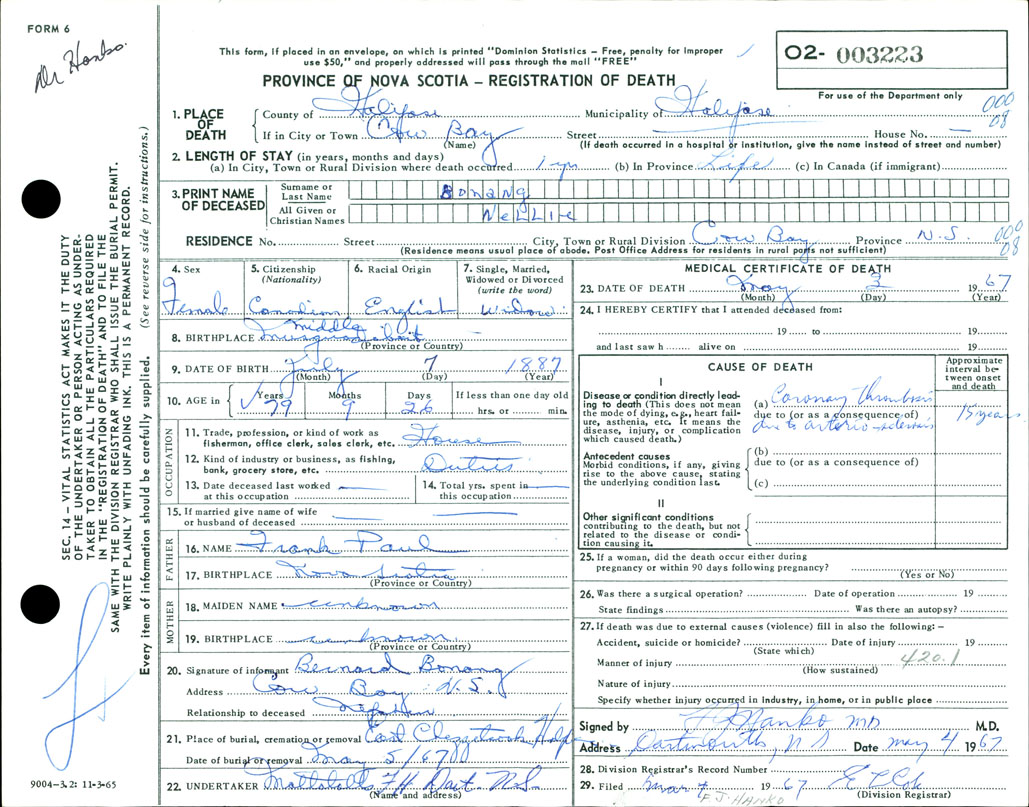 FORM 6
Dr Hanko.
This form, if placed in an envelope, on which is printed "Dominion Statistics – Free, penalty for improper
use $50," and properly addressed will pass through the mail "FREE"
O2- 003223
For use of the Department only
PROVINCE OF NOVA SCOTIA – REGISTRATION OF DEATH
1. PLACE OF DEATH
County of Halifax Municipality of Halifax 000 08
If in City or Town Cow Bay Street House No. —
(Name) (If death occurred in a hospital or institution, give the name instead of street and number)
2. LENGTH OF STAY (in years, months and days)
(a) In City, Town or Rural Division where death occurred 1 yr (b) In Province Life (c) In Canada (if immigrant)
3. PRINT NAME OF DECEASED
Surname or Last Name BONANG
All Given or Christian Names NELLIE
RESIDENCE No. Street City, Town or Rural Division Cow Bay Province N.S. 000 08
(Residence means usual place of abode. Post Office Address for residents in rural parts not sufficient)
4. Sex Female
5. Citizenship (Nationality) Canadian
6. Racial Origin English
7. Single, Married, Widowed or Divorced (write the word) Widow
8. BIRTHPLACE Middle Musquodoboit
(Province or Country)
9. DATE OF BIRTH July 7 1887
(Month) (Day) (Year)
10. AGE in Years 79 Months 9 Days 26 If less than one day old hrs. or min.
OCCUPATION
11. Trade, profession, or kind of work as fisherman, office clerk, sales clerk, etc. House
12. Kind of industry or business, as fishing, bank, grocery store, etc. Duties
13. Date deceased last worked at this occupation —
14. Total yrs. spent in this occupation —
15. If married give name of wife or husband of deceased —
FATHER
16. NAME Frank Paul
17. BIRTHPLACE Nova Scotia
(Province or Country)
MOTHER
18. MAIDEN NAME unknown
19. BIRTHPLACE unknown
(Province or Country)
20. Signature of informant Bernard Bonang
Address Cow Bay N.S.
Relationship to deceased
21. Place of burial, cremation or removal East Chezzetcook
Date of burial or removal May 5/67
22. UNDERTAKER F.H. Dart. N.S.
(Name and address)
MEDICAL CERTIFICATE OF DEATH
23. DATE OF DEATH May 3 1967
(Month) (Day) (Year)
24. I HEREBY CERTIFY that I attended deceased from:
19 to 19
and last saw h alive on 19
CAUSE OF DEATH
Approximate interval between onset and death
I
Disease or condition directly leading to death (This does not mean the mode of dying, e.g., heart failure, asthenia, etc. It means the disease, injury, or complication which caused death.)
(a) Coronary Thrombosis 15 years
due to (or as a consequence of)
due to arterio-sclerosis
Antecedent causes
Morbid conditions, if any, giving rise to the above cause, stating the underlying condition last.
(b)
due to (or as a consequence of)
(c)
II
Other significant conditions contributing to the death, but not related to the disease or condition causing it.
25. If a woman, did the death occur either during pregnancy or within 90 days following pregnancy?
(Yes or No)
26. Was there a surgical operation? Date of operation 19
State findings Was there an autopsy?
27. If death was due to external causes (violence) fill in also the following: –
Accident, suicide or homicide? Date of injury 19
(State which)
Manner of injury 420.1
(How sustained)
Nature of injury
Specify whether injury occurred in Industry, in home, or in public place
Signed by Hanko MD M.D.
Address Dartmouth, N S Date May 4 1967
28. Division Registrar's Record Number
29. Filed 1967
F J. HANKO (Division Registrar)
SEC. 14 – VITAL STATISTICS ACT MAKES IT THE DUTY
OF THE UNDERTAKER OR PERSON ACTING AS UNDER-
TAKER TO OBTAIN ALL THE PARTICULARS REQUIRED
IN THE "REGISTRATION OF DEATH" AND TO FILE THE
SAME WITH THE DIVISION REGISTRAR WHO SHALL ISSUE THE BURIAL PERMIT.
WRITE PLAINLY WITH UNFADING INK. THIS IS A PERMANENT RECORD.
Every item of information should be carefully supplied. (See reverse side for instructions.)
9004-3.2: 11-3-65